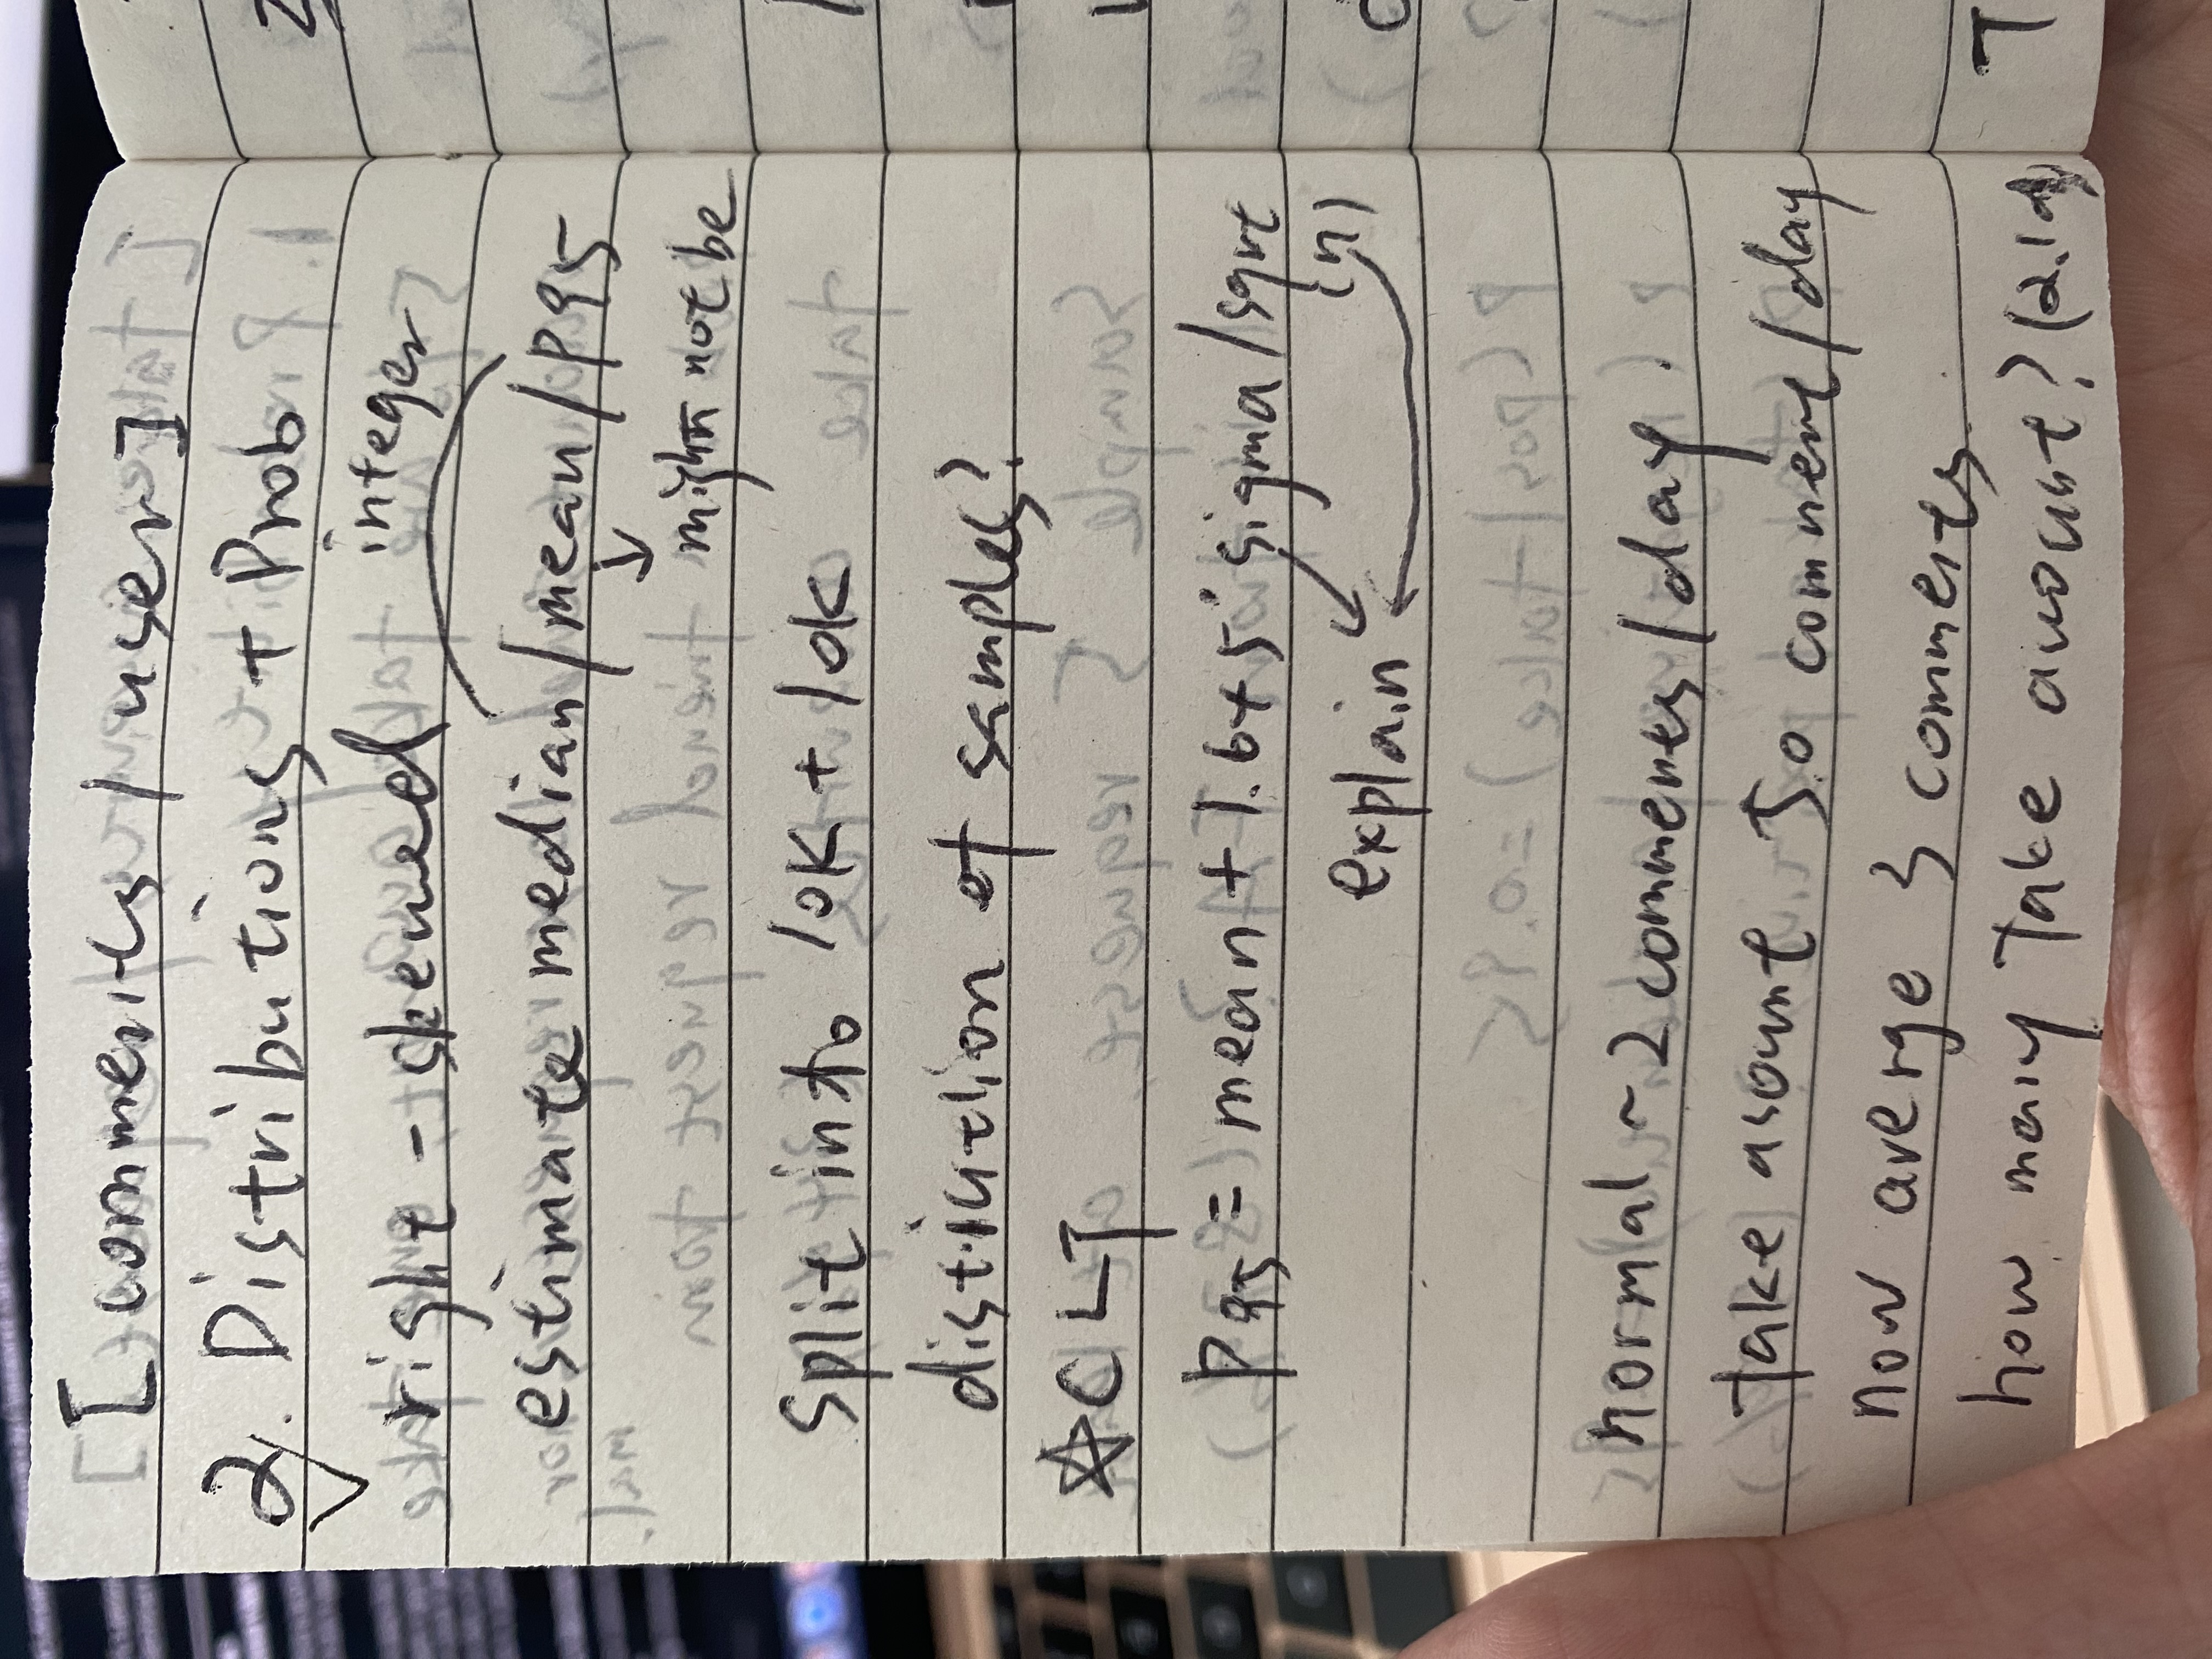 [comments / user]
2. Distributions + Prob
right - skewed
integer
estimate median / mean / p95
↓
might not be
Split into 10K + 10K
distribution of samples?
☆ CLT
P95 = mean + 1.6+5 · sigma / sqrt
(n)
explain
normal ~ 2 comments / day.
take account 50 comment / day
now averge 3 comments.
how many take account? (2.1%)